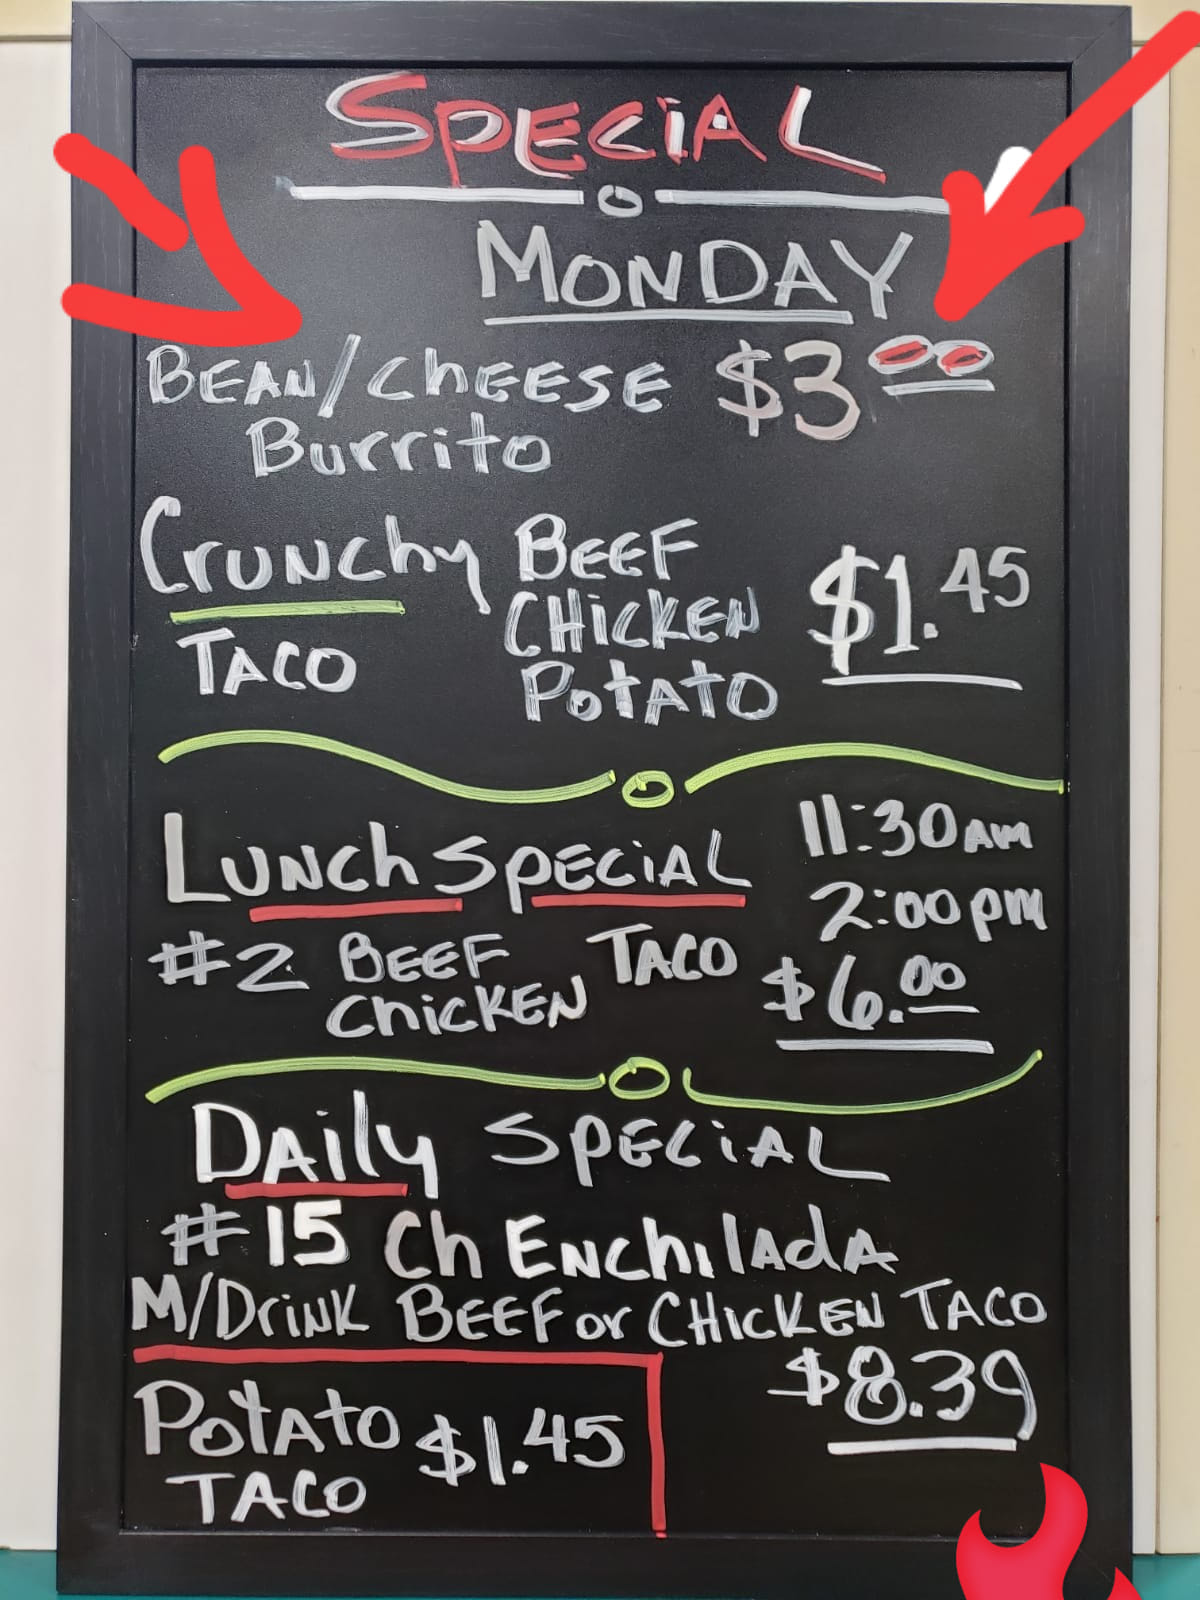 SPECIAL
MONDAY
BEAN/CHEESE $3.00
Burrito
Crunchy BEEF $1.45
CHICKEN
TACO
Potato
Lunch Special 11:30AM
2:00pm
#2 BEEF TACO $6.00
Chicken
Daily Special
#15 Ch Enchilada
M/Drink BEEF or CHICKEN TACO
$8.39
Potato $1.45
TACO